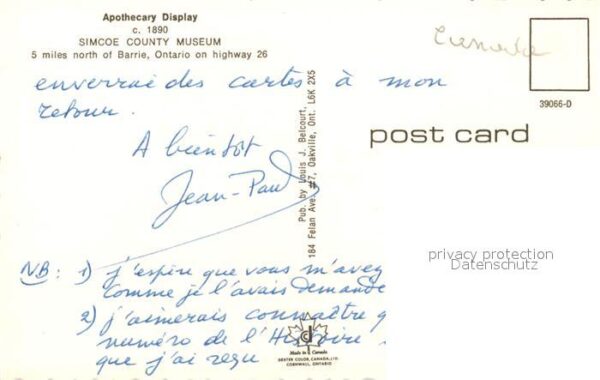 Apothecary Display
c. 1890
SIMCOE COUNTY MUSEUM
5 miles north of Barrie, Ontario on highway 26
enverrai des cartes à mon
retour.
A bientôt
Jean-Paul
NB: 1) j'espère que vous m'avez
comme je l'avais demandé
2) j'aimerais connaître q
numéro de l'Histoire
que j'ai reçu
Pub. by Louis J. Belcourt,
184 Felan Ave. #7, Oakville, Ont. L6K 2X5
Made in Canada
DEXTER COLOR, CANADA, LTD.
CORNWALL, ONTARIO
39066-D
post card
privacy protection
Datenschutz